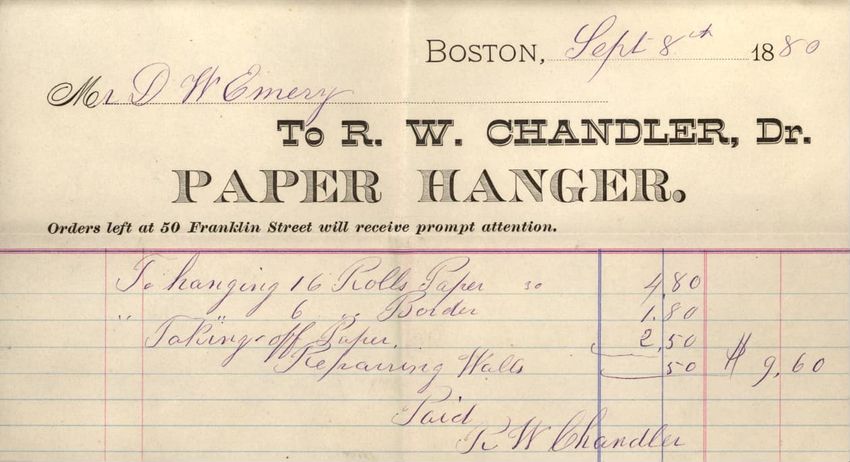 BOSTON, Sept 8th 1880
Mr D W Emery
To R. W. CHANDLER, Dr.
PAPER HANGER.
Orders left at 50 Franklin Street will receive prompt attention.
To hanging 16 Rolls Paper 30 4,80
" " 6 " Border 1.80
Taking off Paper. 2,50
Repairing Walls 50 $ 9,60
Paid
R W Chandler